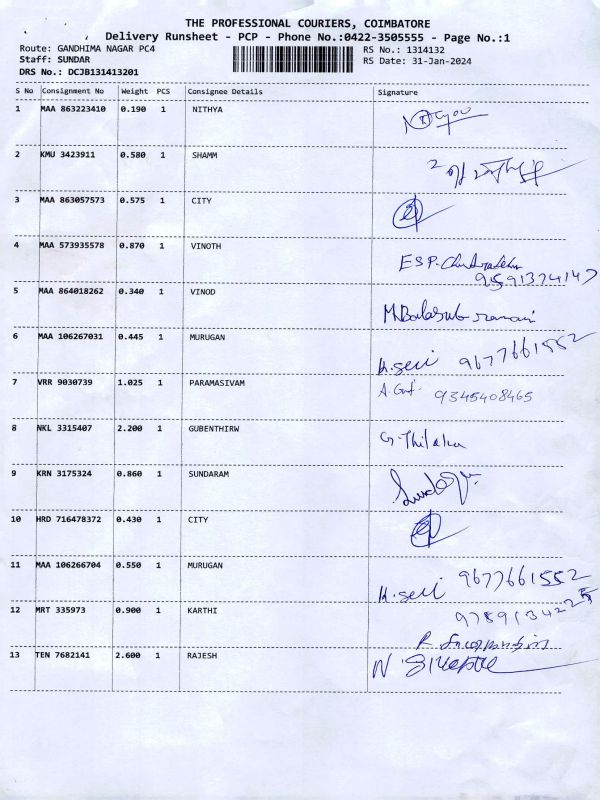 THE PROFESSIONAL COURIERS, COIMBATORE
Delivery Runsheet - PCP - Phone No.:0422-3505555 - Page No.:1
Route: GANDHIMA NAGAR PC4 RS No.: 1314132
Staff: SUNDAR RS Date: 31-Jan-2024
DRS No.: DCJB131413201
S No Consignment No Weight PCS Consignee Details Signature
1 MAA 863223410 0.190 1 NITHYA
2 KMU 3423911 0.580 1 SHAMM
3 MAA 863057573 0.575 1 CITY
4 MAA 573935578 0.870 1 VINOTH ESP.
9591374147
5 MAA 864018262 0.340 1 VINOD M.Balasubramani
6 MAA 106267031 0.445 1 MURUGAN 9677661552
7 VRR 9030739 1.025 1 PARAMASIVAM 9345408465
8 NKL 3315407 2.200 1 GUBENTHIRW G.Thilaka
9 KRN 3175324 0.860 1 SUNDARAM
10 HRD 716478372 0.430 1 CITY
11 MAA 106266704 0.550 1 MURUGAN 9677661552
12 MRT 335973 0.900 1 KARTHI
13 TEN 7682141 2.600 1 RAJESH